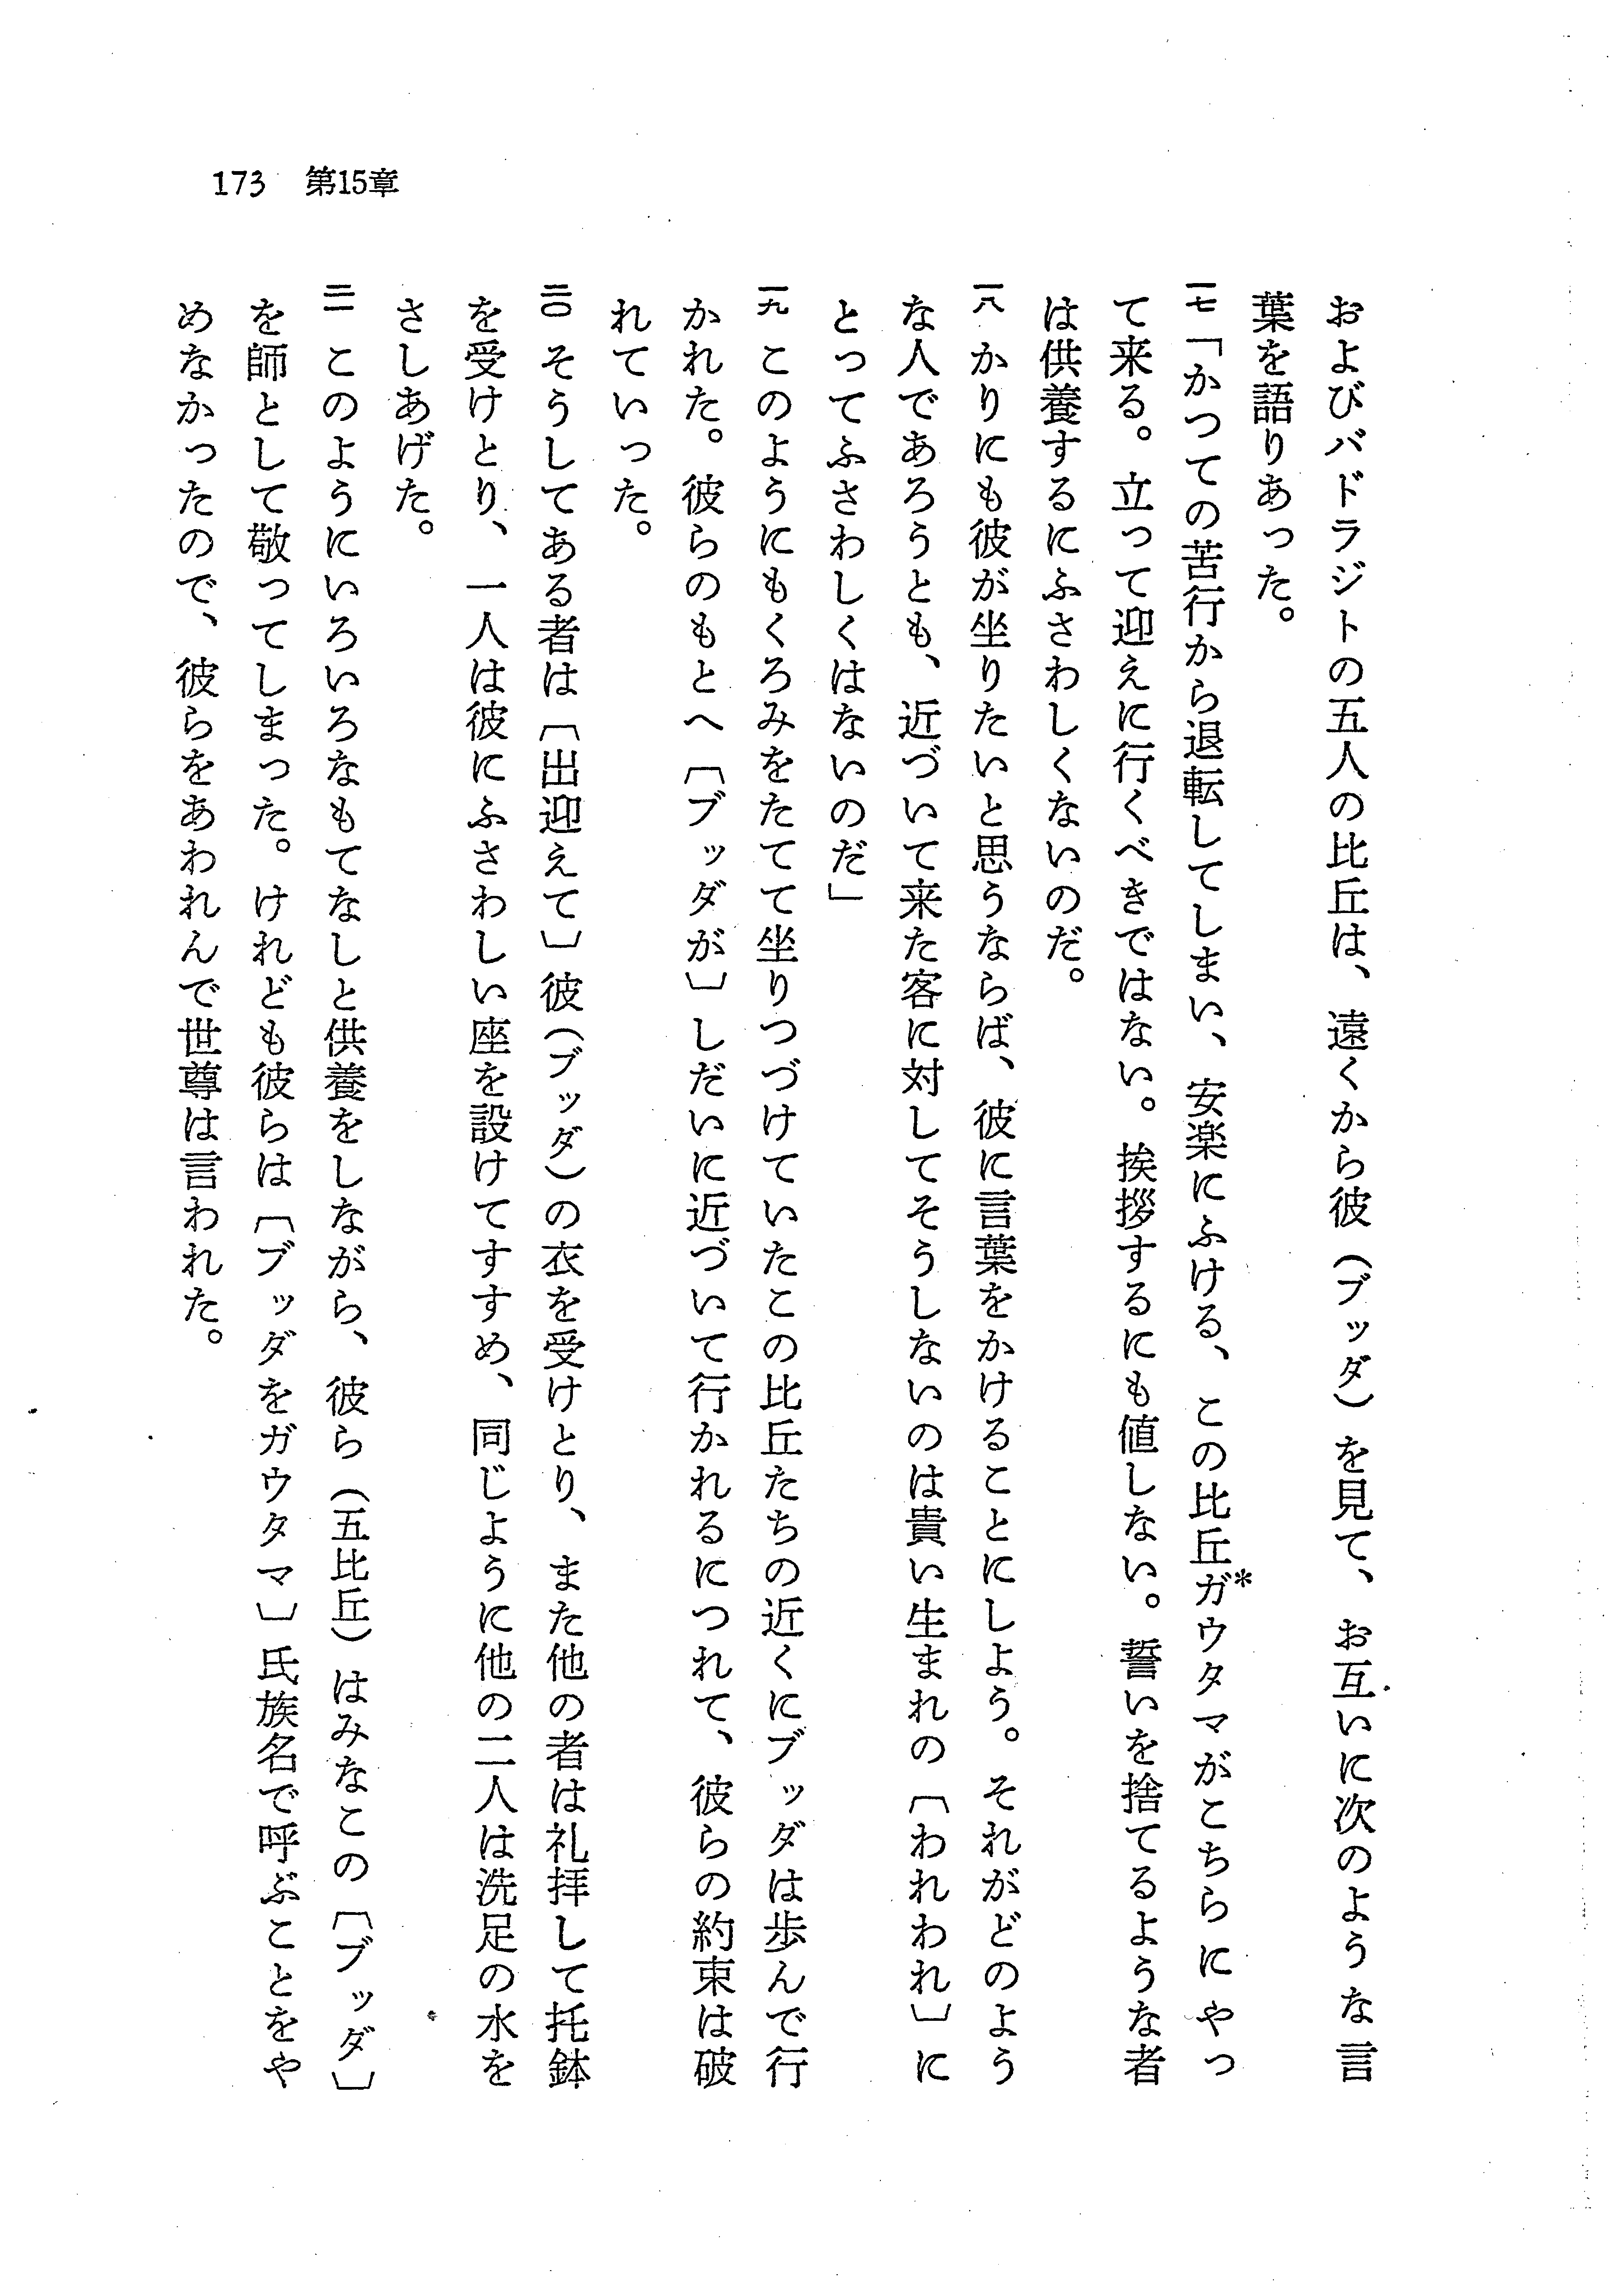 173 第15章
およびバドラジトの五人の比丘は、遠くから彼（ブッダ）を見て、お互いに次のような言
葉を語りあった。
一七「かつての苦行から退転してしまい、安楽にふける、この比丘ガ*ウタマがこちらにやっ
て来る。立って迎えに行くべきではない。挨拶するにも値しない。誓いを捨てるような者
は供養するにふさわしくないのだ。
一八 かりにも彼が坐りたいと思うならば、彼に言葉をかけることにしよう。それがどのよう
な人であろうとも、近づいて来た客に対してそうしないのは貴い生まれの〔われわれ〕に
とってふさわしくはないのだ」
一九 このようにもくろみをたてて坐りつづけていたこの比丘たちの近くにブッダは歩んで行
かれた。彼らのもとへ〔ブッダが〕しだいに近づいて行かれるにつれて、彼らの約束は破
れていった。
二〇 そうしてある者は〔出迎えて〕彼（ブッダ）の衣を受けとり、また他の者は礼拝して托鉢
を受けとり、一人は彼にふさわしい座を設けてすすめ、同じように他の二人は洗足の水を
さしあげた。
二一 このようにいろいろなもてなしと供養をしながら、彼ら（五比丘）はみなこの〔ブッダ〕
を師として敬ってしまった。けれども彼らは〔ブッダをガウタマ〕氏族名で呼ぶことをや
めなかったので、彼らをあわれんで世尊は言われた。